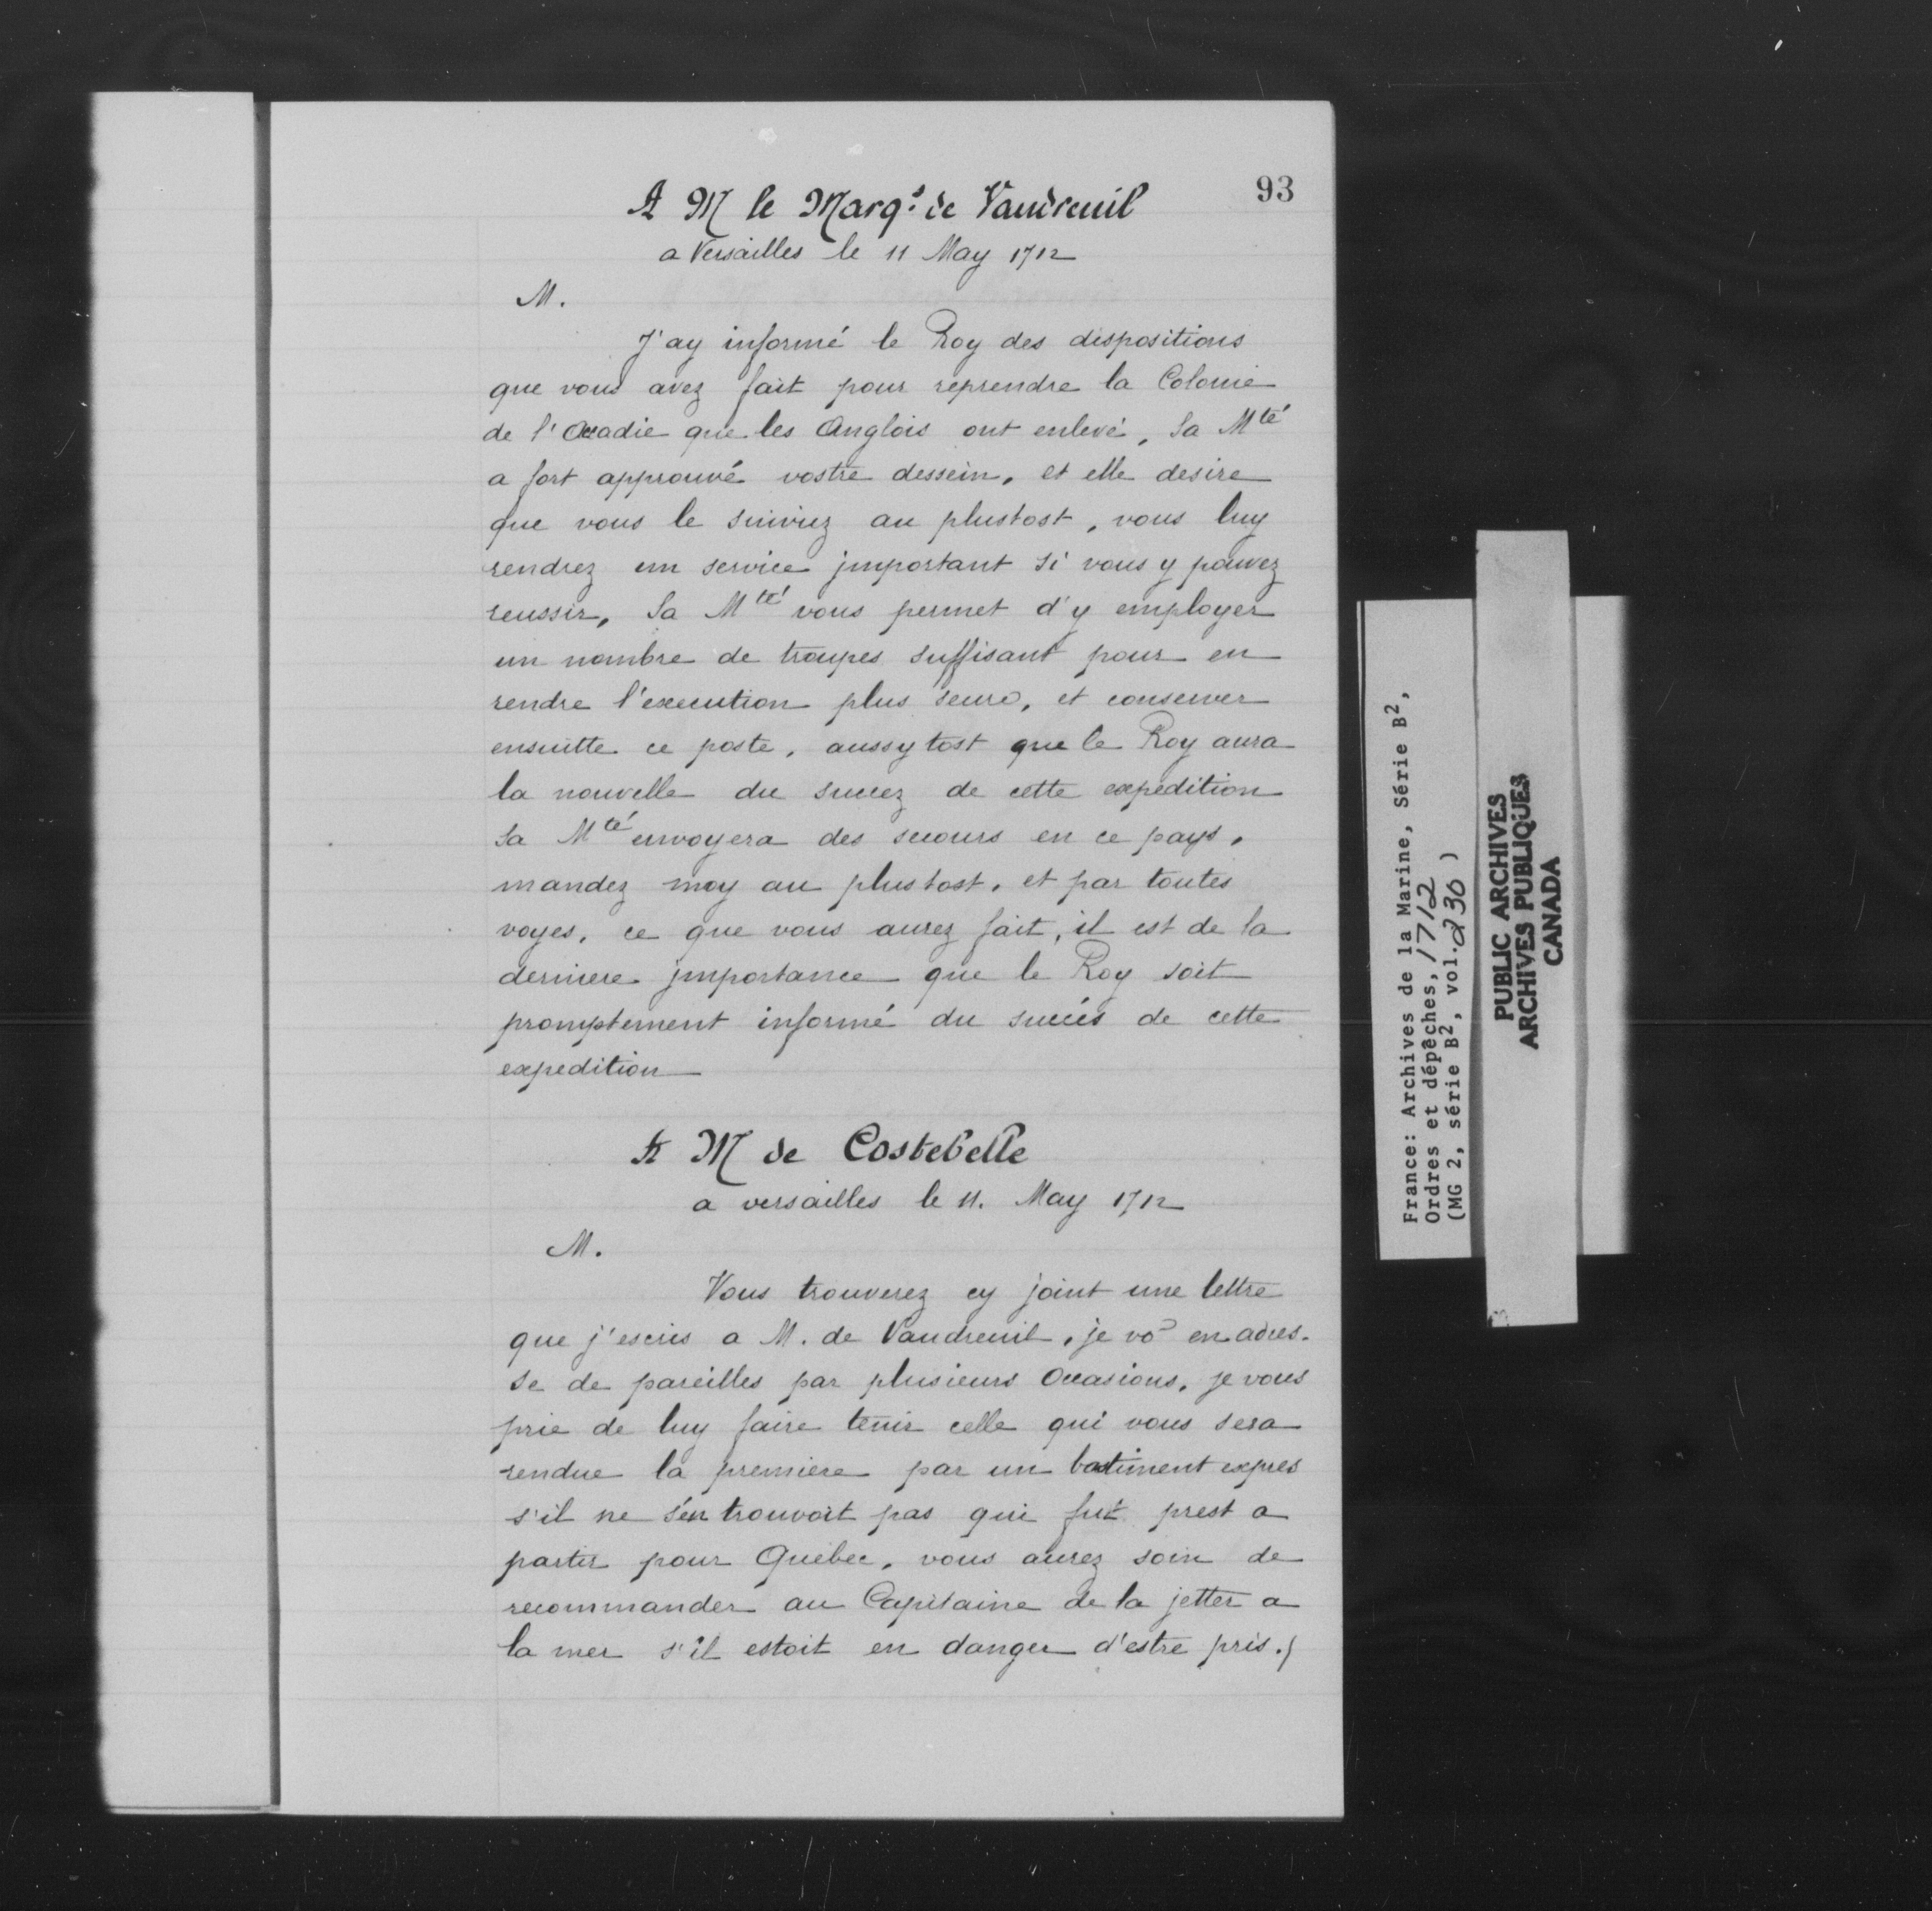 93
A M le Marq.s de Vaudreuil
a Versailles le 11 May 1712
M.
J'ay informé le Roy des dispositions
que vous avez fait pour reprendre la Colonie
de l'Accadie que les Anglois ont enlevé, Sa Mté
a fort approuvé vostre dessein, et elle desire
que vous le suiviez au plustost, vous luy
rendrez un service jmportant si vous y pouvez
reussir, Sa Mté vous permet d'y employer
un nombre de troupes suffisant pour en
rendre l'execution plus seure, et conserver
ensuitte ce poste, aussytost que le Roy aura
la nouvelle du succez de cette expedition
Sa Mté envoyera des secours en ce pays,
mandez moy au plustost, et par toutes
voyes, ce que vous aurez fait, il est de la
derniere jmportance que le Roy soit
promptement informé du succés de cette
expedition
A M de Costebelle
a versailles le 11. May 1712
M.
Vous trouverez cy joint une lettre
que j'escris a M. de Vaudreuil, je vo~ en adres-
se de pareilles par plusieurs Occasions, je vous
prie de luy faire tenir celle qui vous sera
rendue la premiere par un bastiment expres
s'il ne s'en trouvoit pas qui fut prest a
partir pour Quebec, vous aurez soin de
recommander au Capitaine de la jetter a
la mer s'il estoit en danger d'estre pris./
France: Archives de la Marine, Série B2,
Ordres et dépêches, 1712
(MG 2, série B2, vol. 230)
PUBLIC ARCHIVES
ARCHIVES PUBLIQUES
CANADA